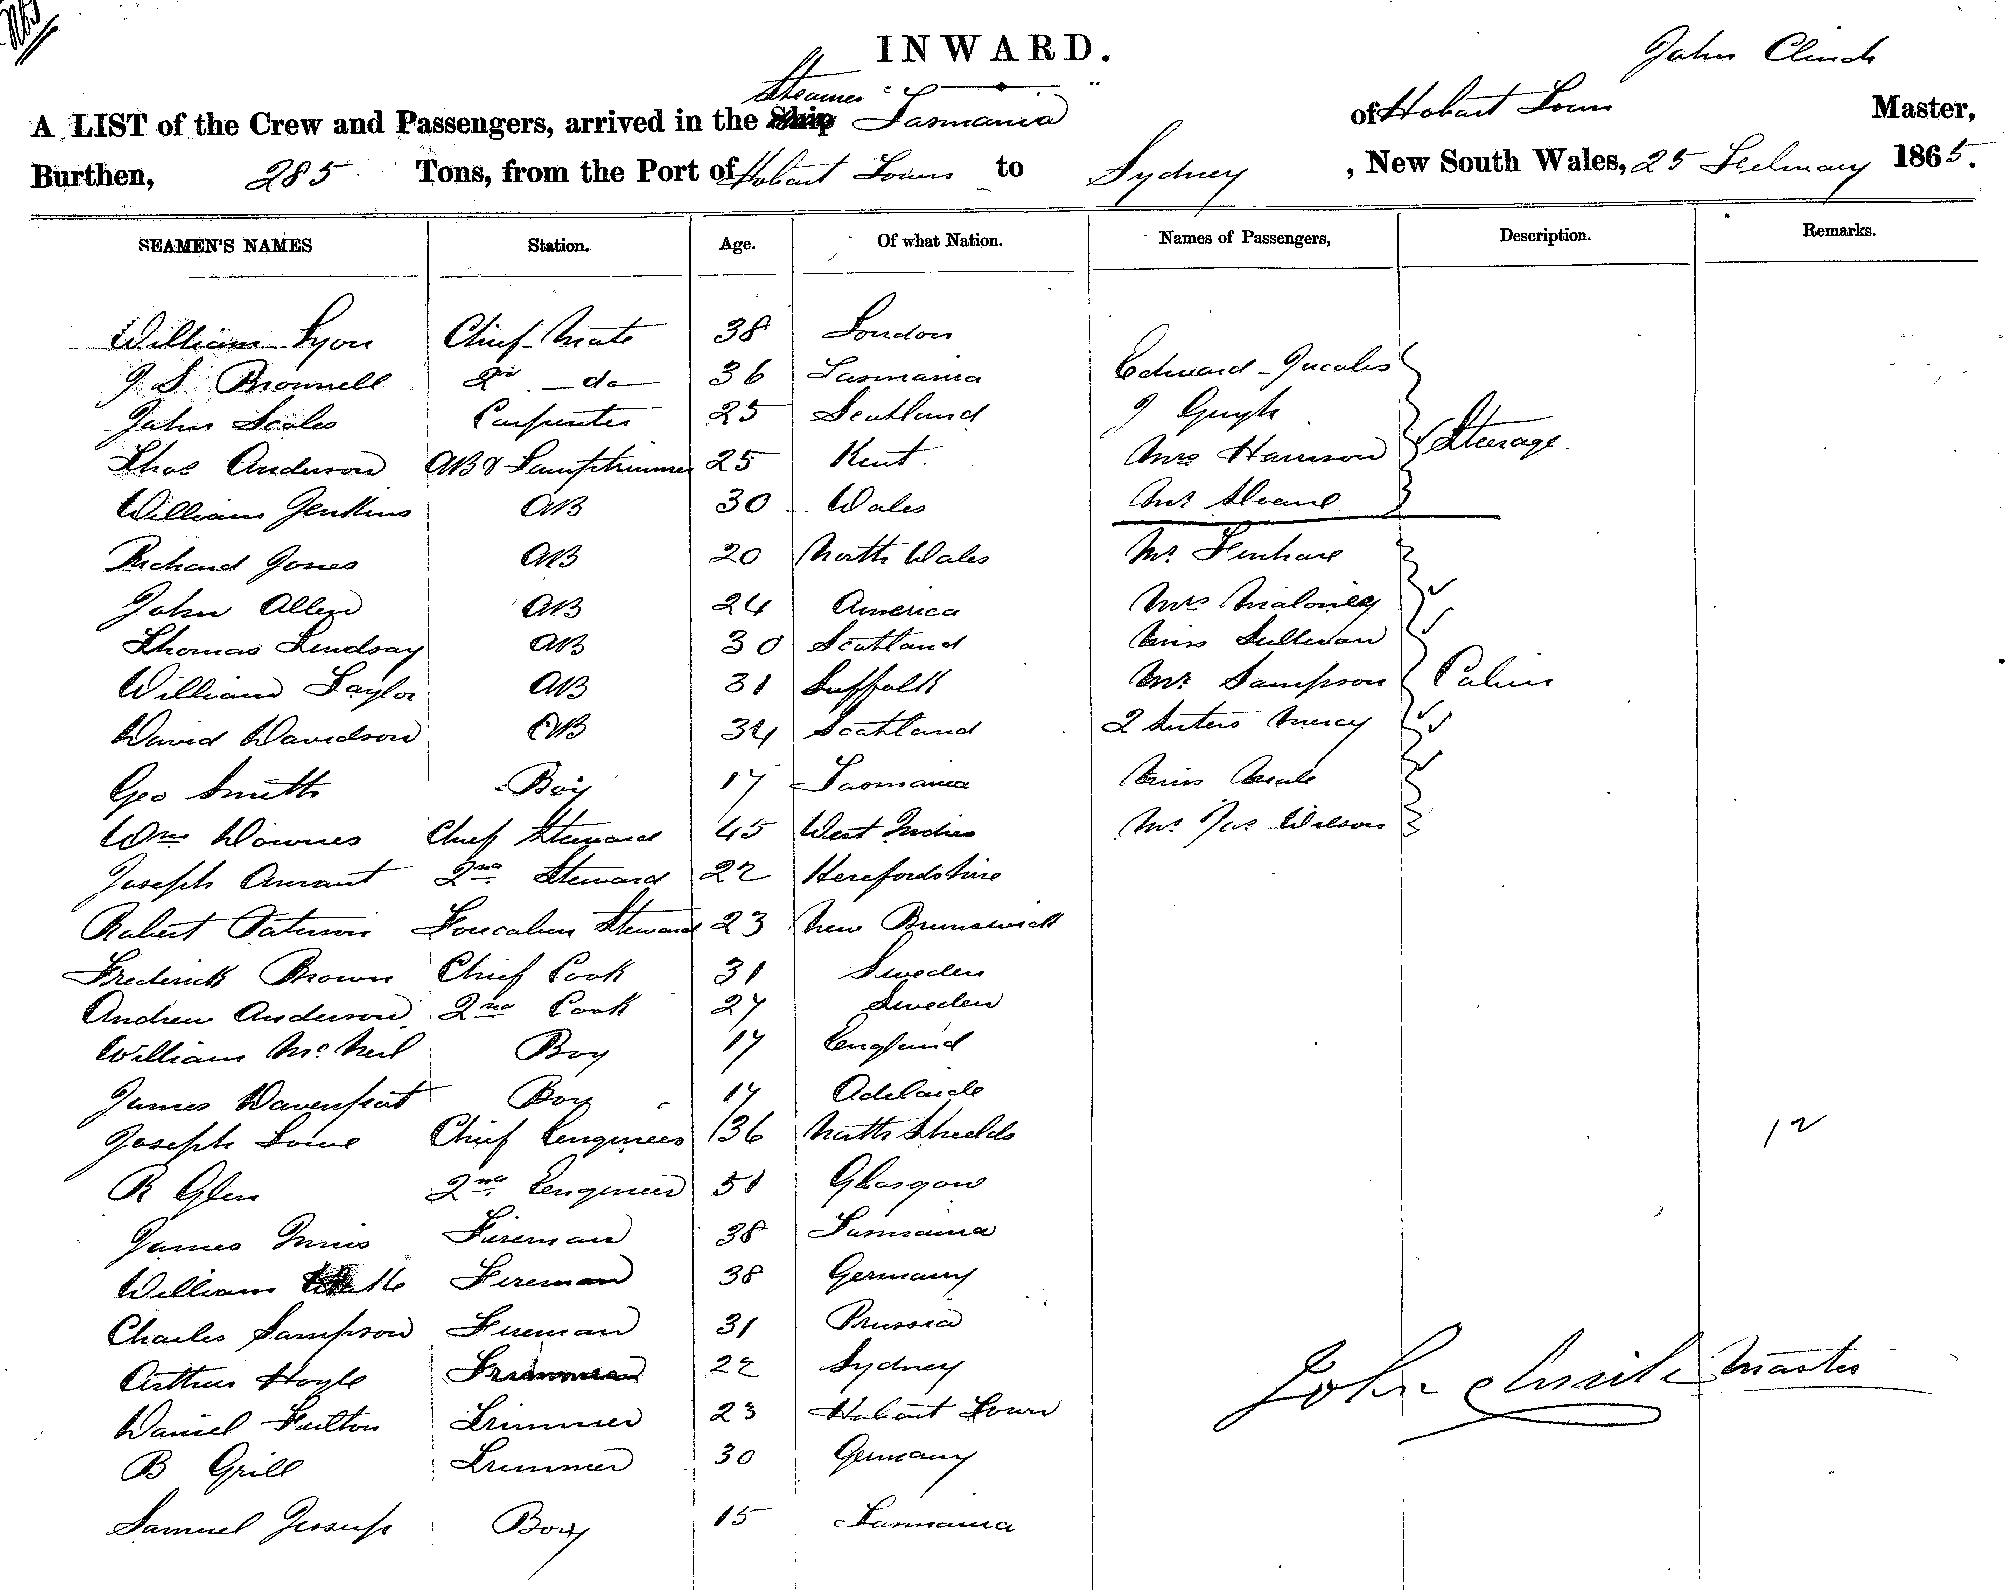 INWARD.
John Clinch
A LIST of the Crew and Passengers, arrived in the Ship Steamer "Tasmania" of Hobart Town Master,
Burthen, 285 Tons, from the Port of Hobart Town to Sydney, New South Wales, 25 February 1865.
SEAMEN'S NAMES Station. Age. Of what Nation. Names of Passengers, Description. Remarks.
William Lyon Chief Mate 38 London
J S Brownell 2nd do 36 Tasmania Edward
John Scales Carpenter 25 Scotland J
Thos Anderson AB & Lamptrimmer 25 Kent Mrs Harrison Steerage
William Jenkins AB 30 Wales
Richard Jones AB 20 North Wales Mr
John Allen AB 24 America Mrs Maloney
Thomas Lindsay AB 30 Scotland Miss Sullivan
William Taylor AB 31 Suffolk Mr Sampson Cabin
David Davidson AB 34 Scotland 2 Sisters Mercy
Geo Smith Boy 17 Tasmania Miss
Wm Downes Chief Steward 45 West Indies Mr Jas Wilson
Joseph 2nd Steward 22 Herefordshire
Robert Paterson Forecabin Steward 23 New Brunswick
Frederick Brown Chief Cook 31 Sweden
Andrew Anderson 2nd Cook 27 Sweden
William McNeil Boy 17 England
James Davenport Boy 17 Adelaide
Joseph Lowe Chief Engineer 36 North Shields 12
R Glen 2nd Engineer 51 Glasgow
James Innis Fireman 38 Tasmania
William Fireman 38 Germany
Charles Sampson Fireman 31 Prussia
Arthur Hoyle Trimmer 22 Sydney John Clinch Master
Daniel Fulton Trimmer 23 Hobart Town
B Grill Trimmer 30 Germany
Samuel Jessup Boy 15 Tasmania